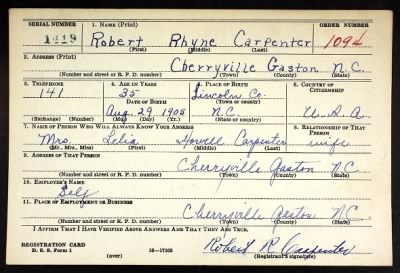 SERIAL NUMBER 1. NAME (Print) ORDER NUMBER
1419 Robert Rhyne Carpenter 1094
(First) (Middle) (Last)
2. ADDRESS (Print)
Cherryville Gaston N.C.
(Number and street or R. F. D. number) (Town) (County) (State)
3. TELEPHONE 4. AGE IN YEARS 5. PLACE OF BIRTH 6. COUNTRY OF CITIZENSHIP
141 35 Lincoln Co.
DATE OF BIRTH (Town or county)
Aug. 29 1905 N.C. U.S.A.
(Exchange) (Number) (Mo.) (Day) (Yr.) (State or country)
7. NAME OF PERSON WHO WILL ALWAYS KNOW YOUR ADDRESS 8. RELATIONSHIP OF THAT PERSON
Mrs. Lelia Howell Carpenter wife
(Mr., Mrs., Miss) (First) (Middle) (Last)
9. ADDRESS OF THAT PERSON
Cherryville Gaston N.C.
(Number and street or R. F. D. number) (Town) (County) (State)
10. EMPLOYER'S NAME
Self
11. PLACE OF EMPLOYMENT OR BUSINESS
Cherryville Gaston N.C.
(Number and street or R. F. D. number) (Town) (County) (State)
I AFFIRM THAT I HAVE VERIFIED ABOVE ANSWERS AND THAT THEY ARE TRUE.
REGISTRATION CARD
D. S. S. Form 1 16—17105 Robert R Carpenter
(over) (Registrant's signature)